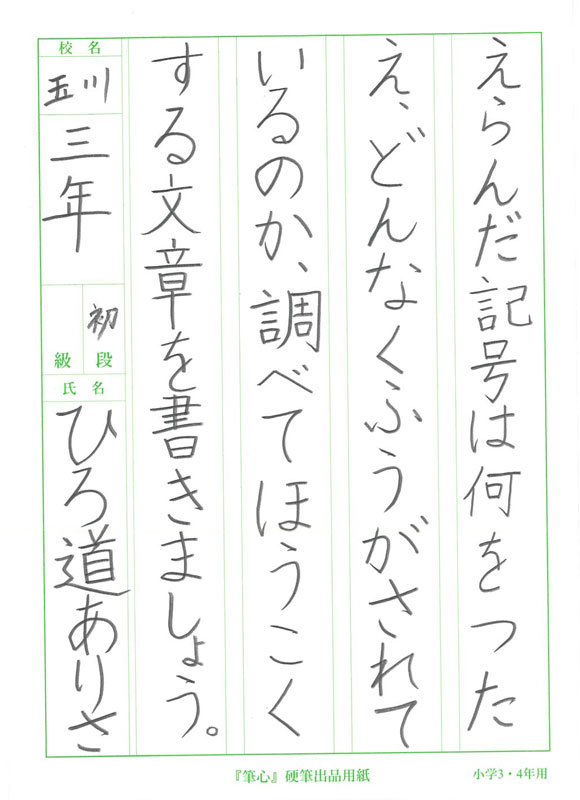 えらんだ記号は何をつった
え、どんなくふうがされて
いるのか、調べてほうこく
する文章を書きましょう。
校名
玉川
三年
初
級
段
氏名
ひろ道ありさ
『筆心』硬筆出品用紙
小学3・4年用